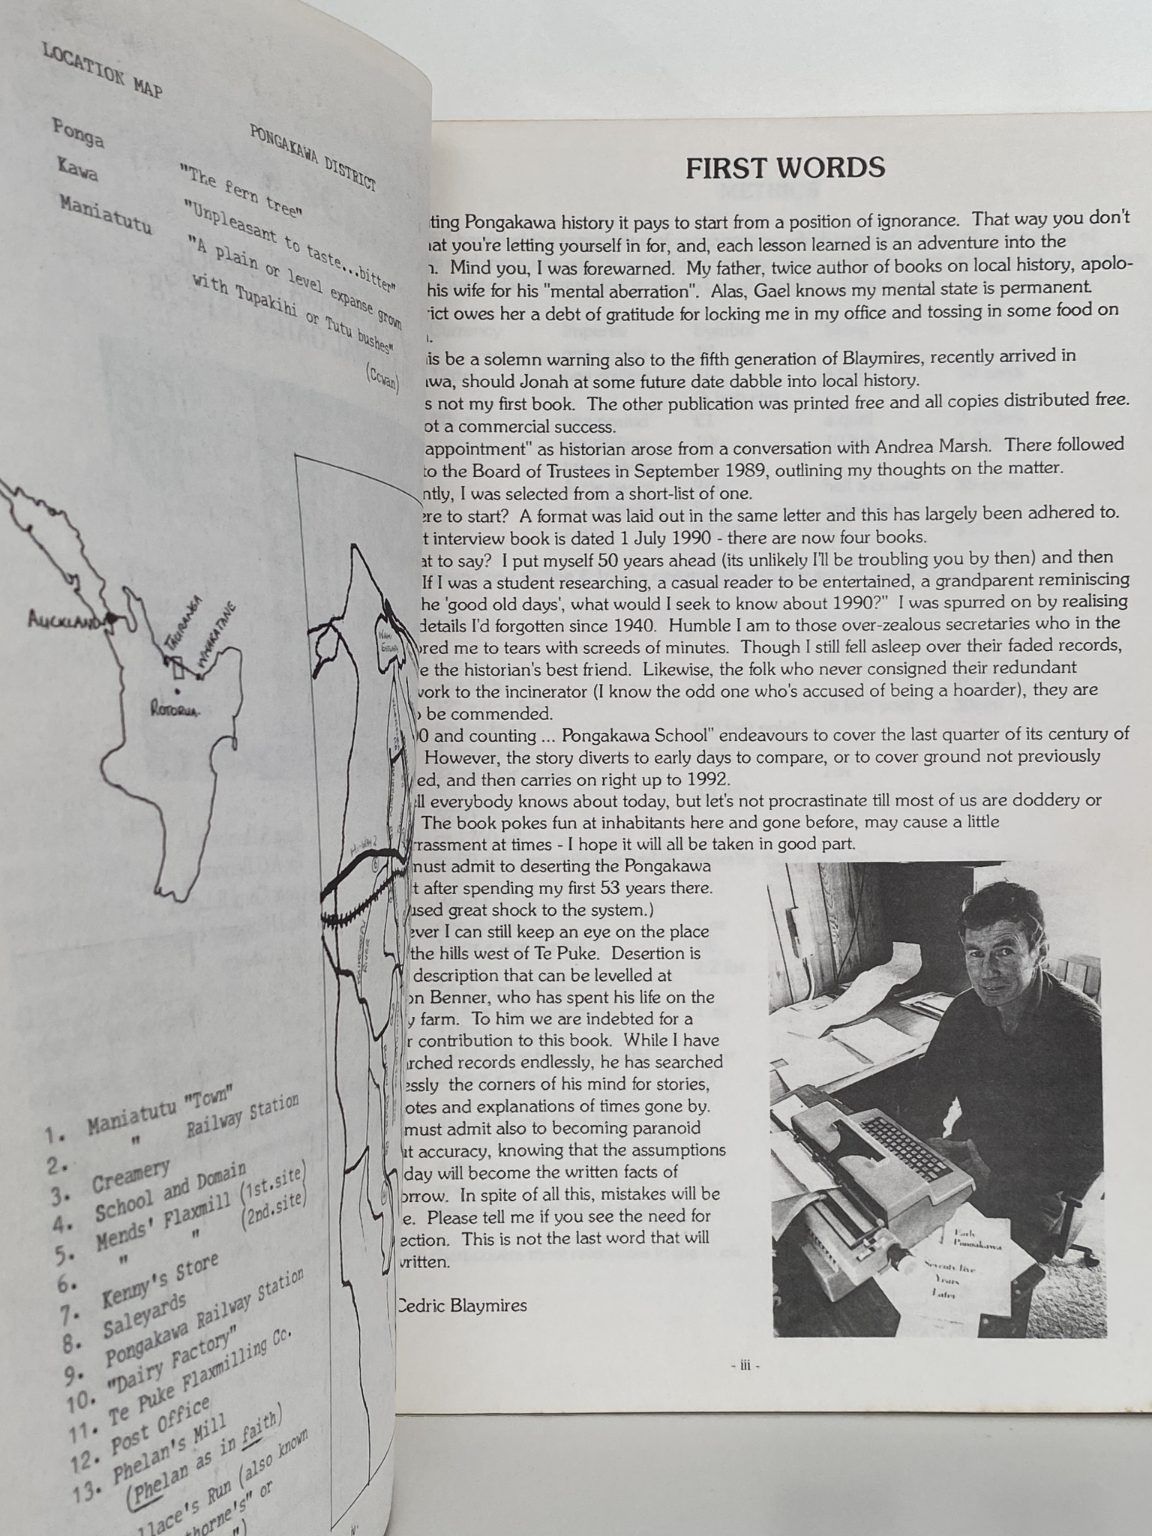 LOCATION MAP
PONGAKAWA DISTRICT
Ponga "The fern tree"
Kawa "Unpleasant to taste...bitter"
Maniatutu "A plain or level expanse grown
with Tupakihi or Tutu bushes"
(Cowan)
AUCKLAND
TAURANGA
WHAKATANE
ROTORUA
1. Maniatutu "Town"
2. " Railway Station
3. Creamery
4. School and Domain
5. Mends' Flaxmill (1st.site)
6. " " (2nd.site)
7. Kenny's Store
8. Saleyards
9. Pongakawa Railway Station
10. "Dairy Factory"
11. Te Puke Flaxmilling Co.
12. Post Office
13. Phelan's Mill
(Phelan as in faith)
Run (also known
or
FIRST WORDS
ting Pongakawa history it pays to start from a position of ignorance. That way you don't
at you're letting yourself in for, and, each lesson learned is an adventure into the
. Mind you, I was forewarned. My father, twice author of books on local history, apolo-
his wife for his "mental aberration". Alas, Gael knows my mental state is permanent.
rict owes her a debt of gratitude for locking me in my office and tossing in some food on
is be a solemn warning also to the fifth generation of Blaymires, recently arrived in
awa, should Jonah at some future date dabble into local history.
s not my first book. The other publication was printed free and all copies distributed free.
ot a commercial success.
appointment" as historian arose from a conversation with Andrea Marsh. There followed
to the Board of Trustees in September 1989, outlining my thoughts on the matter.
ntly, I was selected from a short-list of one.
ere to start? A format was laid out in the same letter and this has largely been adhered to.
t interview book is dated 1 July 1990 - there are now four books.
at to say? I put myself 50 years ahead (its unlikely I'll be troubling you by then) and then
If I was a student researching, a casual reader to be entertained, a grandparent reminiscing
he 'good old days', what would I seek to know about 1990?" I was spurred on by realising
details I'd forgotten since 1940. Humble I am to those over-zealous secretaries who in the
ored me to tears with screeds of minutes. Though I still fell asleep over their faded records,
e the historian's best friend. Likewise, the folk who never consigned their redundant
work to the incinerator (I know the odd one who's accused of being a hoarder), they are
o be commended.
0 and counting ... Pongakawa School" endeavours to cover the last quarter of its century of
However, the story diverts to early days to compare, or to cover ground not previously
ed, and then carries on right up to 1992.
ll everybody knows about today, but let's not procrastinate till most of us are doddery or
The book pokes fun at inhabitants here and gone before, may cause a little
rrassment at times - I hope it will all be taken in good part.
must admit to deserting the Pongakawa
t after spending my first 53 years there.
used great shock to the system.)
ever I can still keep an eye on the place
the hills west of Te Puke. Desertion is
description that can be levelled at
on Benner, who has spent his life on the
y farm. To him we are indebted for a
r contribution to this book. While I have
rched records endlessly, he has searched
essly the corners of his mind for stories,
otes and explanations of times gone by.
must admit also to becoming paranoid
ut accuracy, knowing that the assumptions
day will become the written facts of
orrow. In spite of all this, mistakes will be
e. Please tell me if you see the need for
ection. This is not the last word that will
written.
Cedric Blaymires
Early
Pongakawa
Seventy five
Years
Later
- iii -